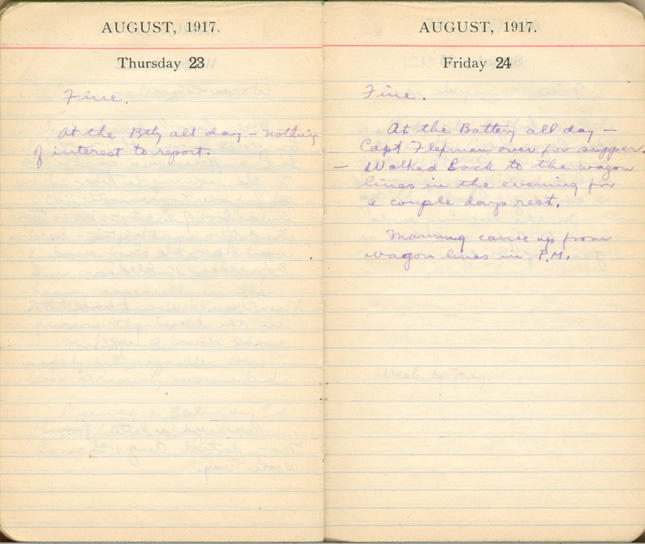 AUGUST, 1917.
Thursday 23
Fine.
At the Bty all day – Nothing
of interest to report.
AUGUST, 1917.
Friday 24
Fine.
At the Battery all day –
Capt over for supper.
– Walked back to the wagon
lines in the evening for
a couple days rest.
Manning came up from
wagon lines in P.M.